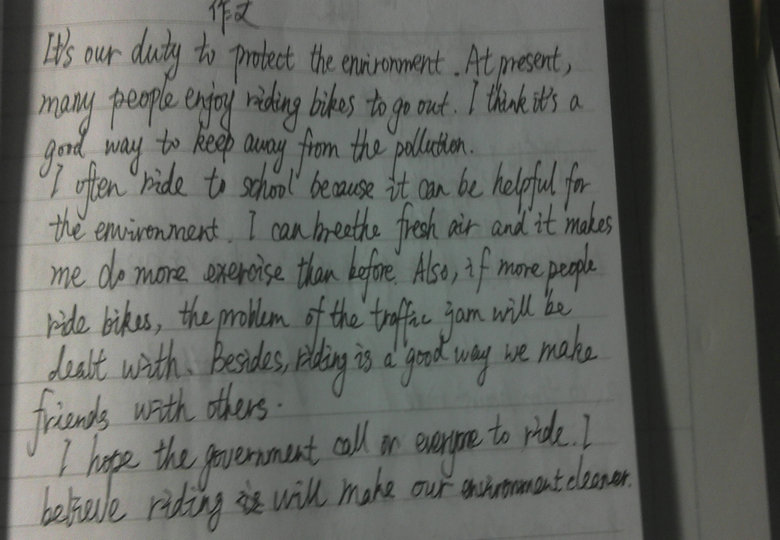 作文
It's our duty to protect the environment. At present,
many people enjoy riding bikes to go out. I think it's a
good way to keep away from the pollution.
I often ride to school because it can be helpful for
the environment. I can breathe fresh air and it makes
me do more exercise than before. Also, if more people
ride bikes, the problem of the traffic jam will be
dealt with. Besides, riding is a good way we make
friends with others.
I hope the government call on everyone to ride. I
believe riding will make our environment cleaner.